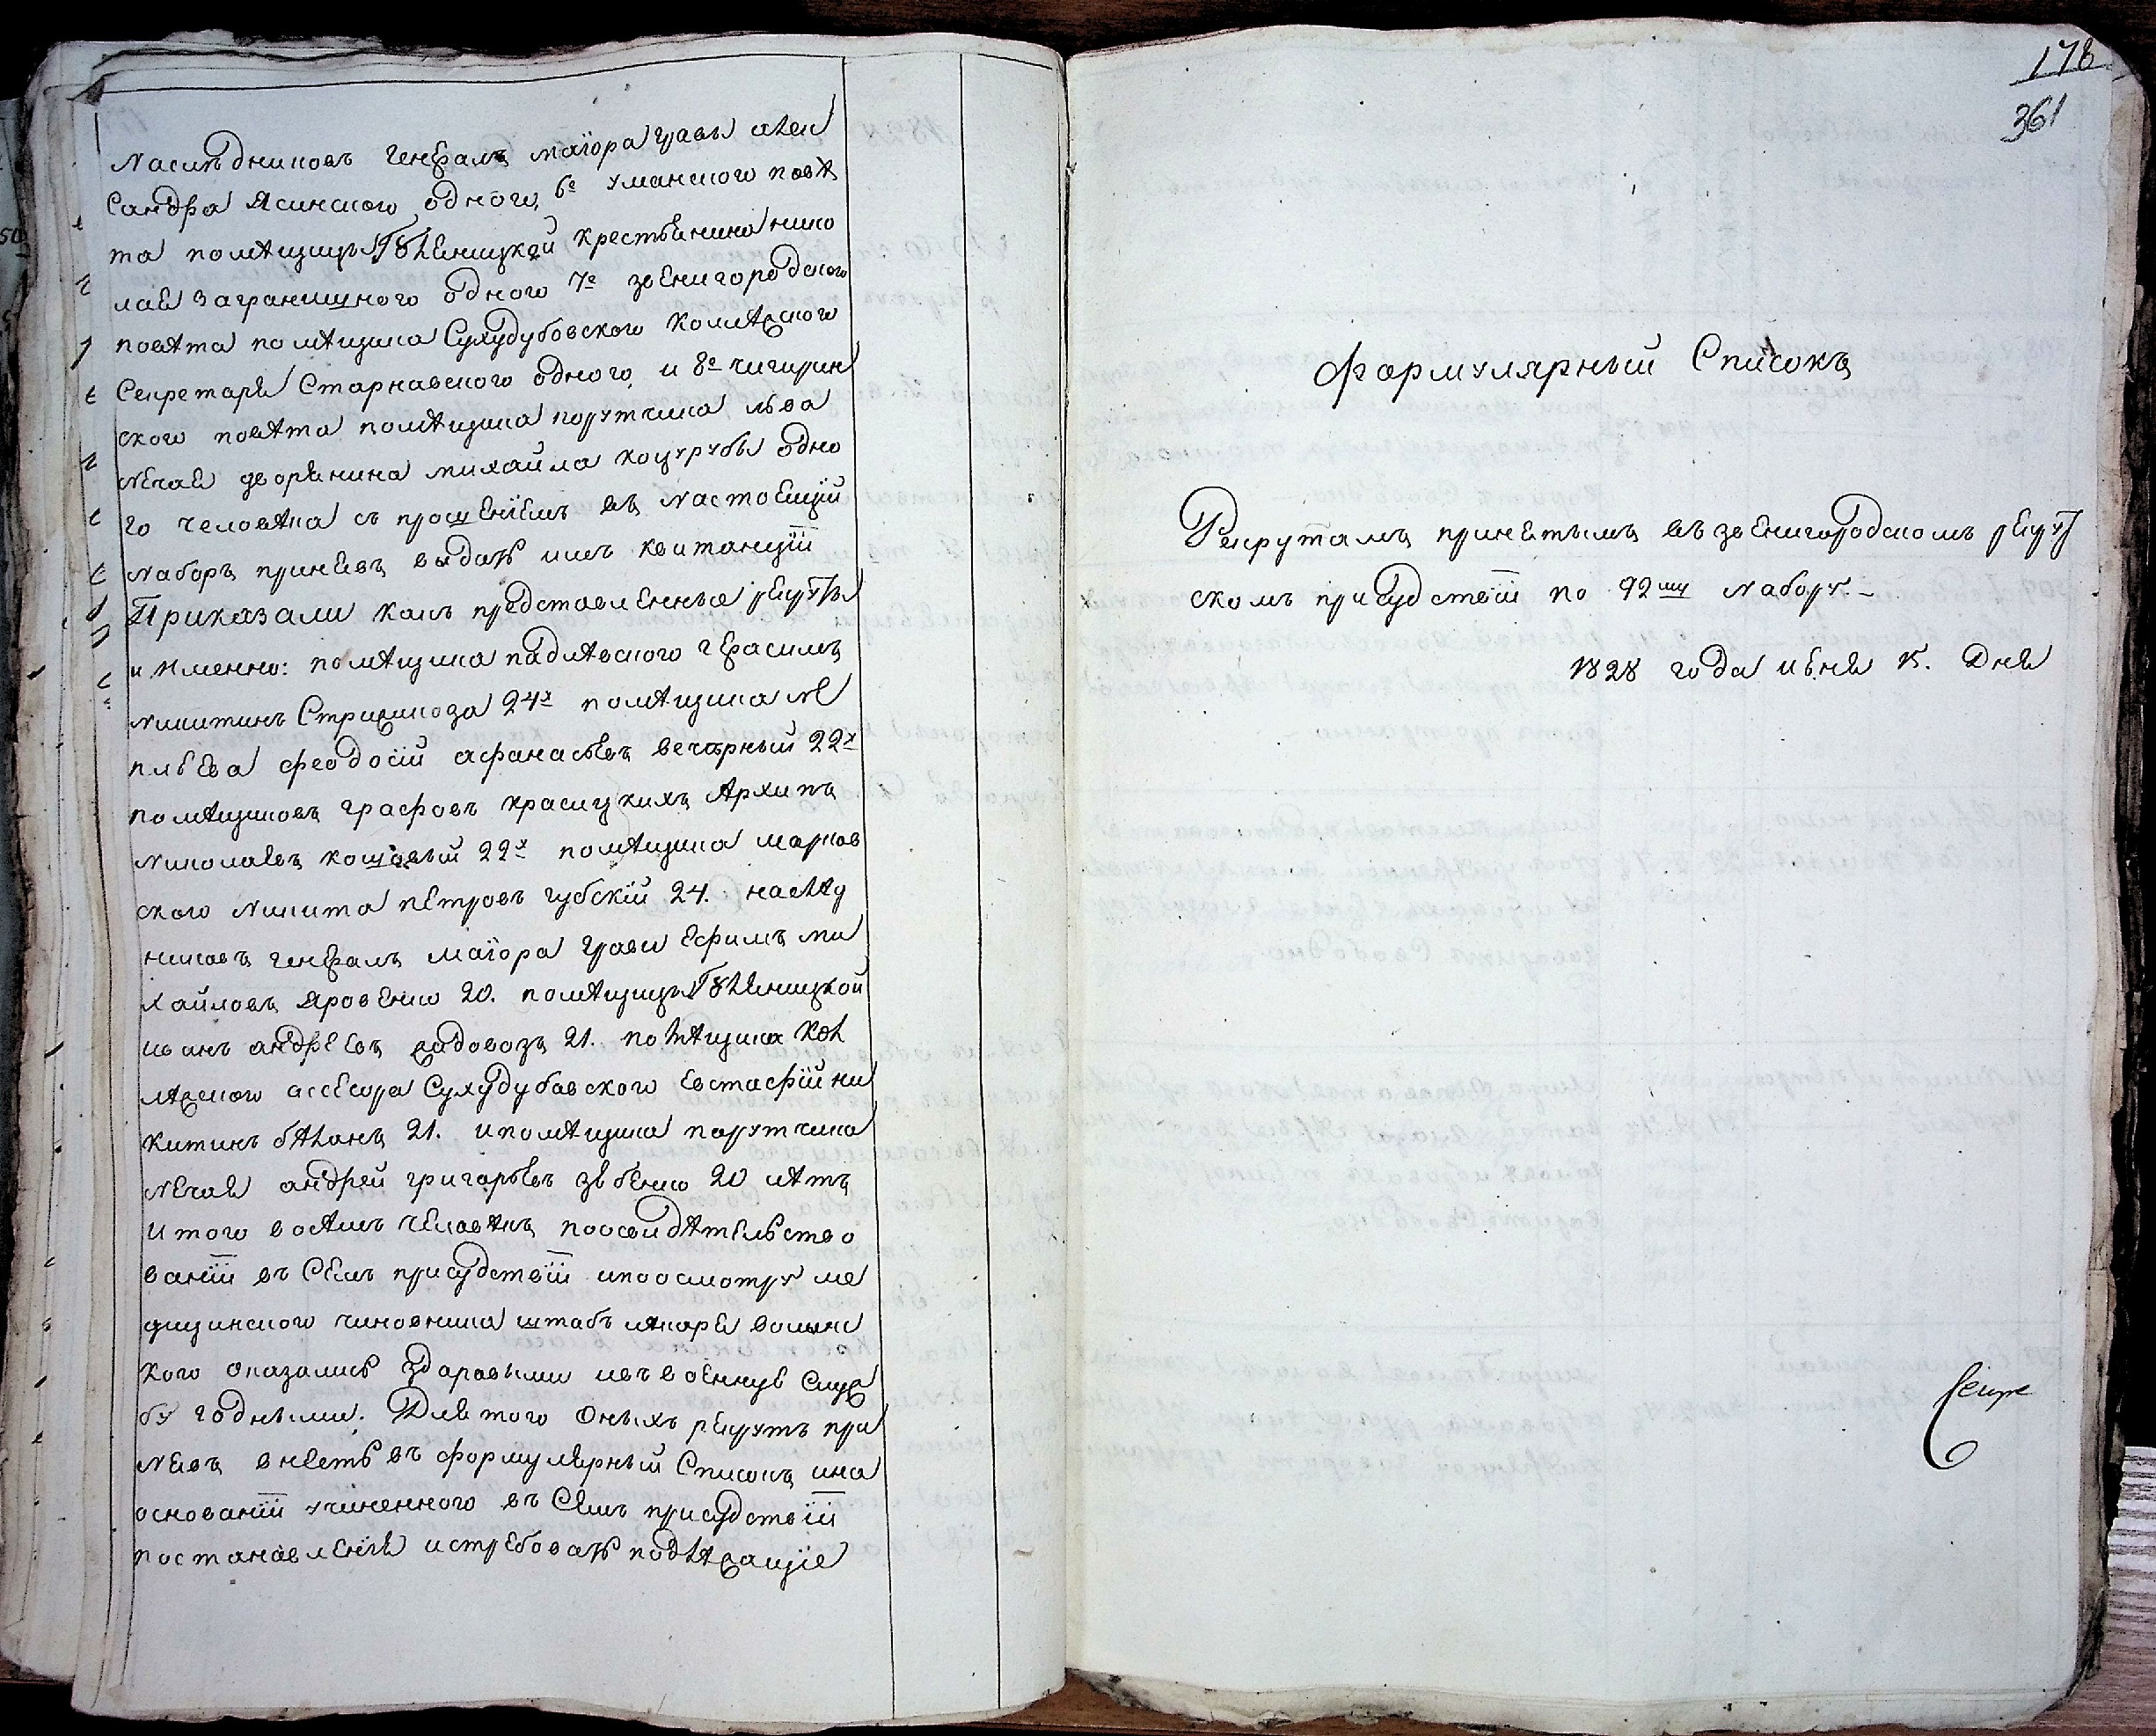 наслѣдниковъ генералъ маіора Грави Алек
сандра Ясинского одного, 6е Уманского повѣ
та помѣщицы крестьянина Нико
лая Заграничного одного 7е Звенигородского
повѣта помѣщика Сухудубовского
секретаря Старнавского одного, и 8е Чигирин
ского повѣта помѣщика порутчика Льва
Нечая дворянина Михайла Коцурубы одно
го человѣка съ прошеніемъ въ настоящій
наборъ принявъ выдать имъ квитанціи
Приказали какъ представленные рекруты
и именно: помѣщика Падлѣвского Герасимъ
Никитинъ 24х помѣщика
Феодосій Афанасьевъ Вечерный 22х
помѣщиковъ графовъ Красицкихъ Архипъ
Николаевъ Кошовый 22х помѣщика Марков
ского Никита Петровъ Губскій 24. наслѣд
никовъ генералъ маіора Грави Ефимъ Ми
хайловъ Яровенко 20. помѣщицы
Иванъ Андреевъ 21. помѣщика кол
лѣжского ассесора Сухудубовского Евстафій Ни
китинъ Бѣлонъ 21. и помѣщика порутчика
Нечая Андрей Григорьевъ 20 лѣтъ
итого восѣмъ человѣкъ по освидѣтельство
ваніи въ семъ присудствіи и по осмотру ме
дицинского чиновника штабъ лѣкаря Волынс
кого оказались здаровыми и въ военную служ
бу годными. Для того оныхъ рекрутъ при
нявъ внесть въ формулярный списокъ и на
основаніи учиненного въ семъ присудствіи
постановленія истребовать подлѣжащіе
178
361
Формулярный Списокъ
Рекрутамъ принятымъ въ Звенигородскомъ рекрут
скомъ присудствіи по 92му набору. –
1828 года іюня 15. дня